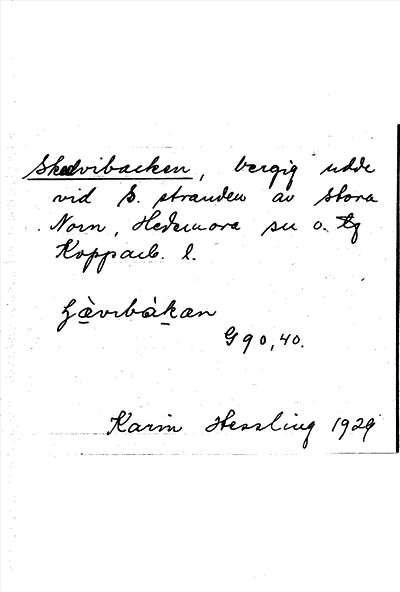 Skedvibacken, bergig udde
vid S. stranden av Stora
Norn, Hedemora sn o. tg
Kopparb. l.
G90,40.
Karin Hessling 1929